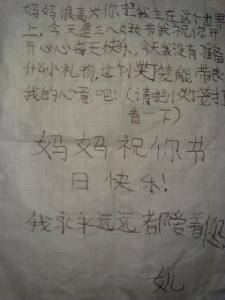 妈妈很高兴你把我生在这个世界
上,今天是三八妇女节我祝你开
开心心每天快乐,今天我没有准备
什么小礼物,这个小灯笼能带表
我的心意吧!(请把小灯笼打
着一下)
妈妈祝你节
日快乐!
我永永远远都爱着您
女儿